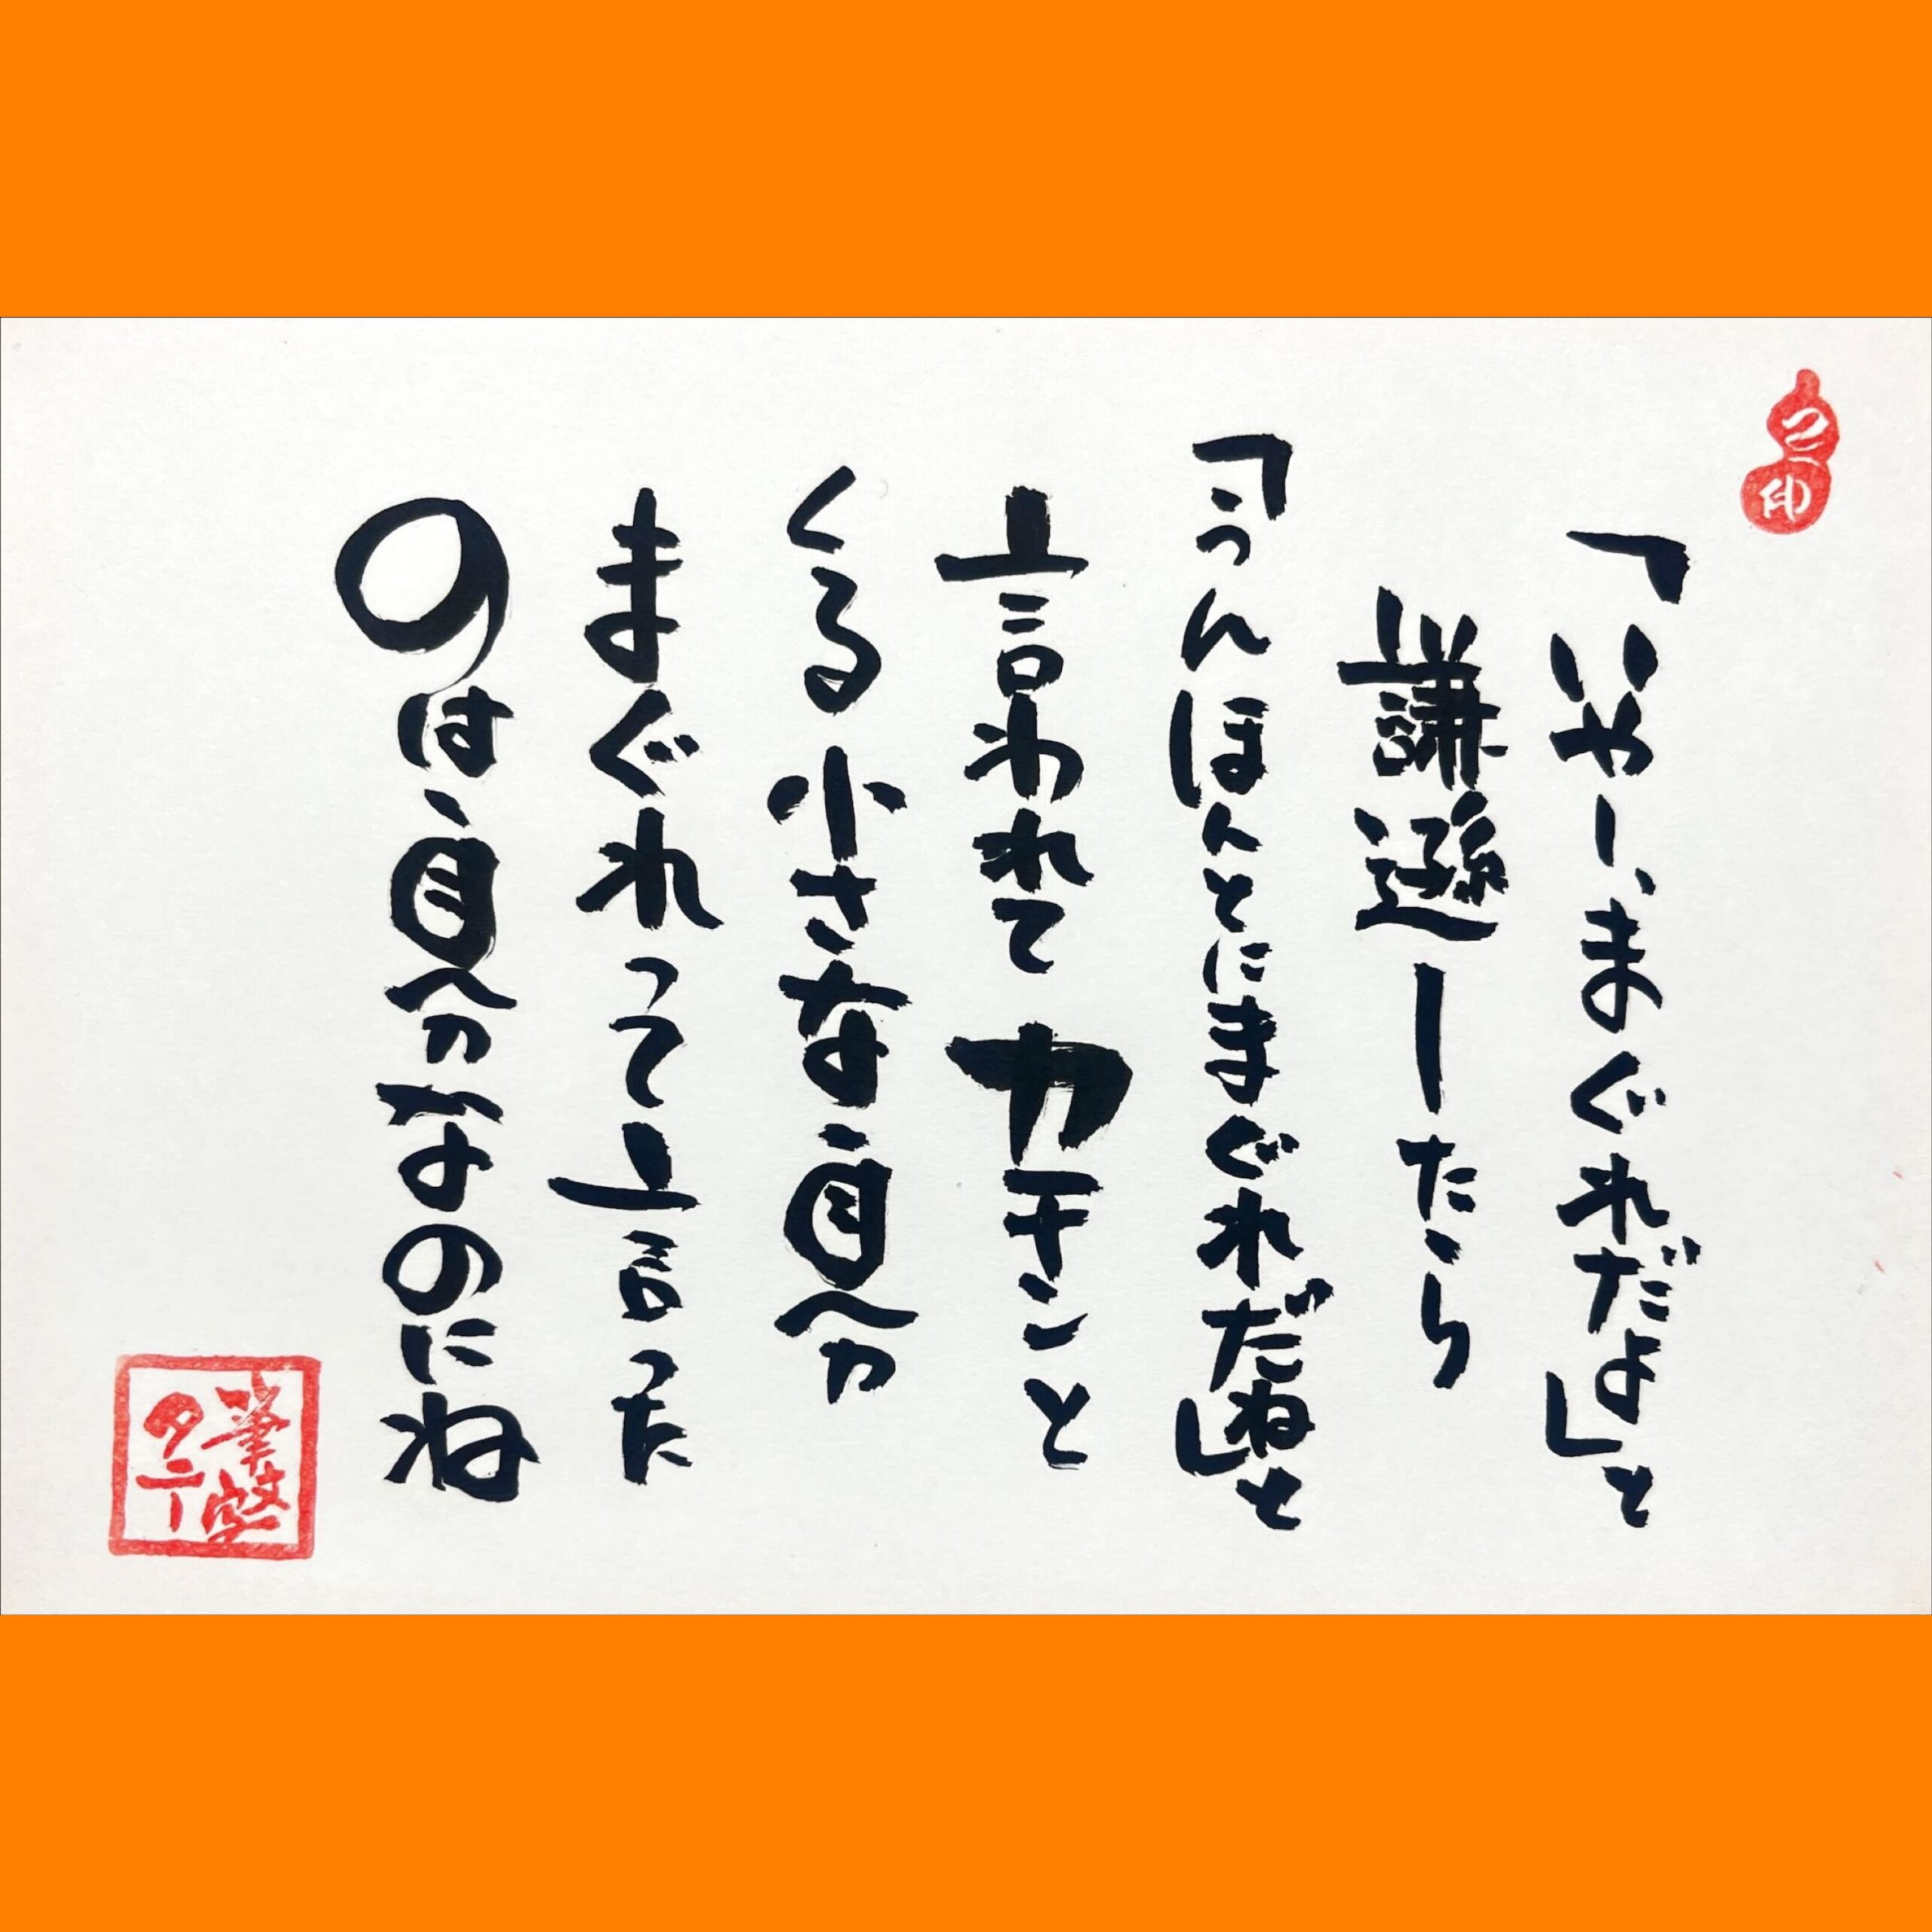 「いやー、まぐれだよ」と
謙遜したら
「うんほんとにまぐれだね」と
言われてカチンと
くる小さな自分
まぐれって言った
のは自分なのにね